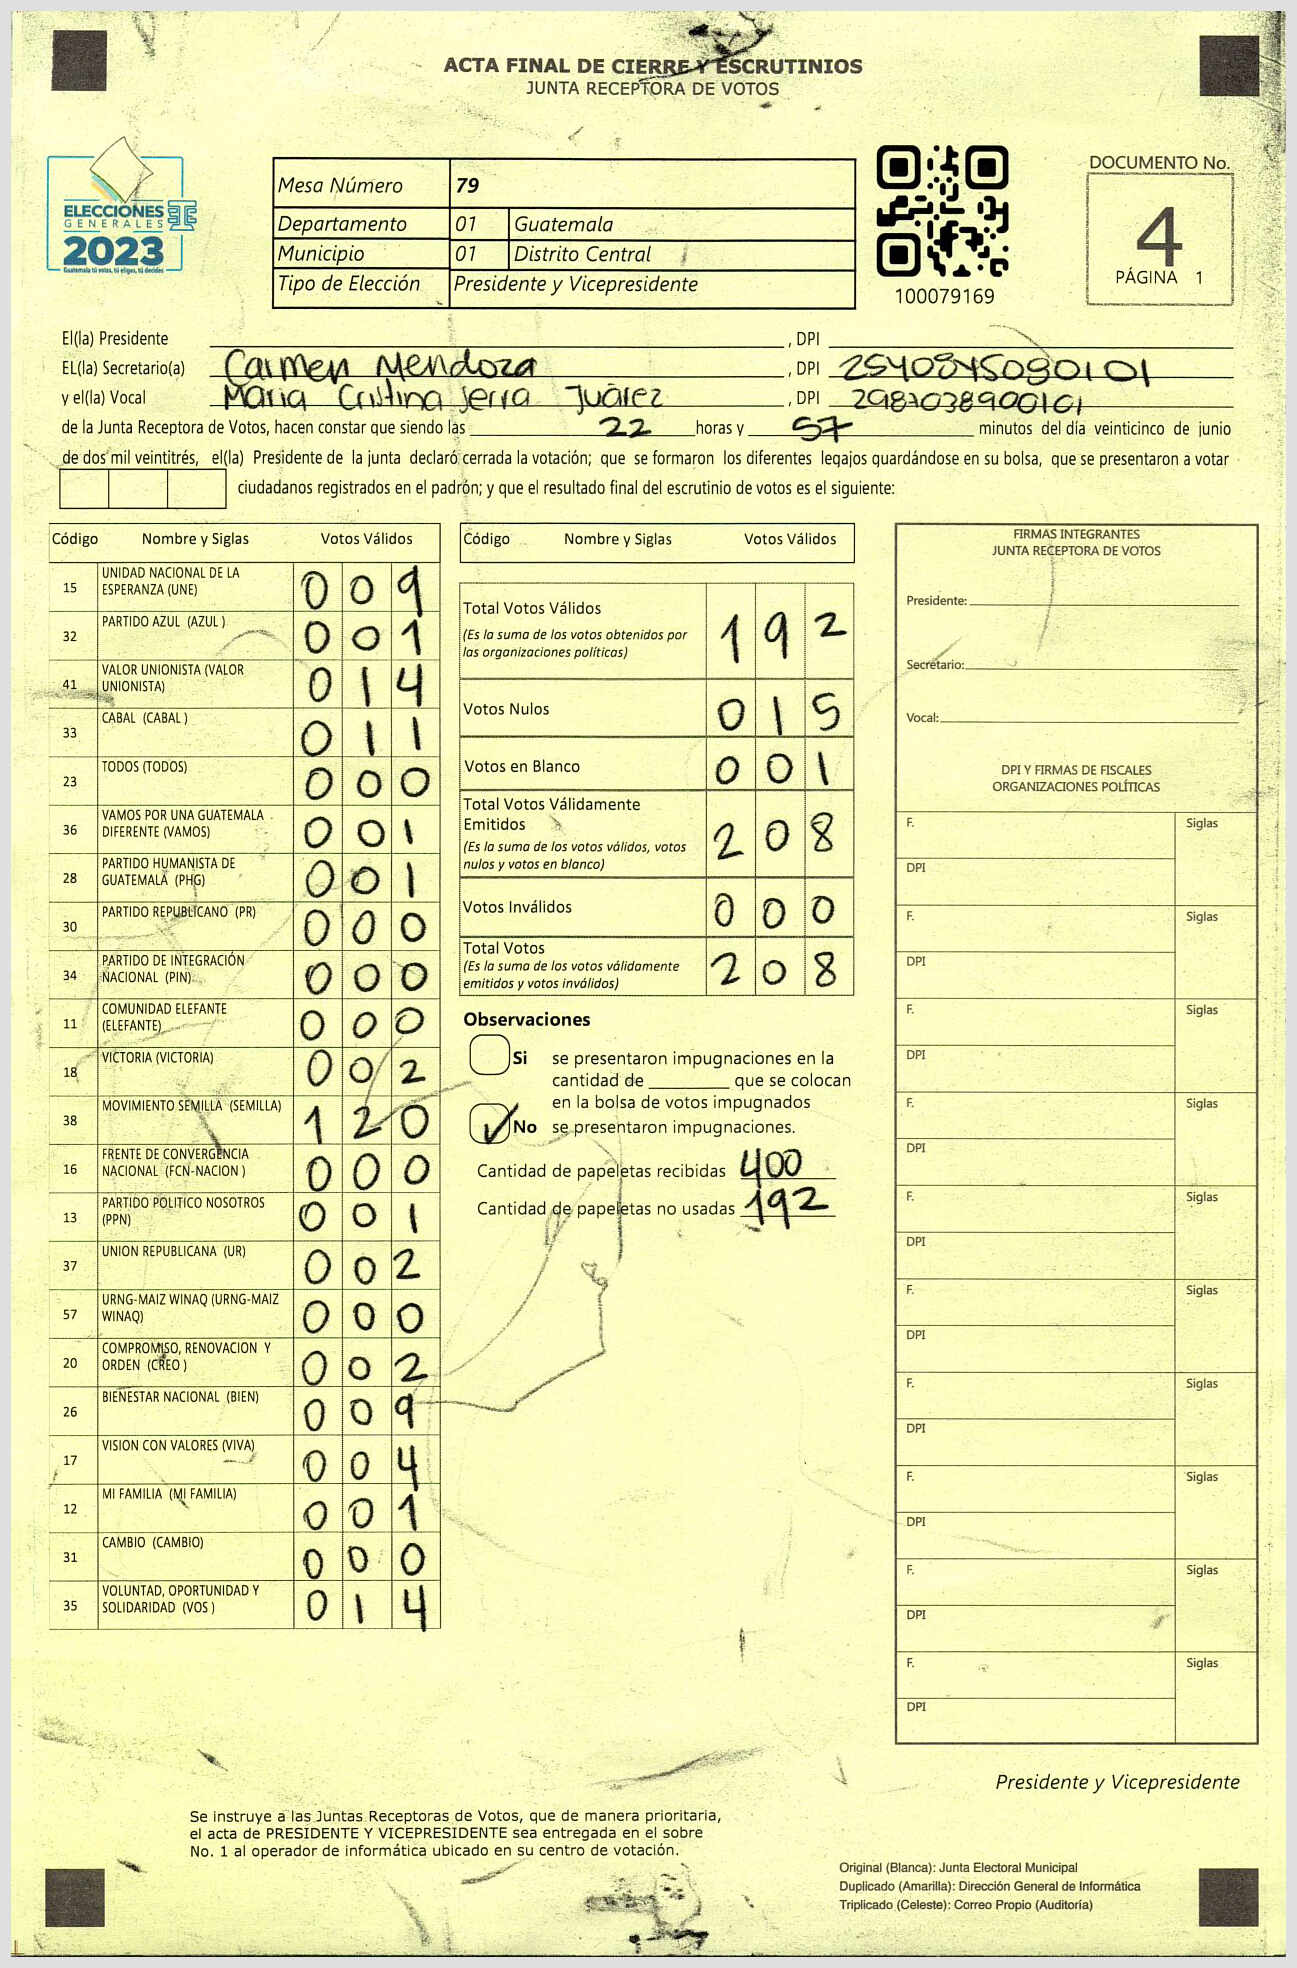 ACTA FINAL DE CIERRE Y ESCRUTINIOS
JUNTA RECEPTORA DE VOTOS
ELECCIONES
GENERALES
2023
Guatemala tú votas, tú eliges, tú decides
Mesa Número 79
Departamento 01 Guatemala
Municipio 01 Distrito Central
Tipo de Elección Presidente y Vicepresidente
100079169
DOCUMENTO No.
4
PÁGINA 1
El(la) Presidente , DPI
EL(la) Secretario(a) Carmen Mendoza , DPI 2540845080101
y el(la) Vocal Maria Cristina Serra Juárez , DPI 2987038900101
de la Junta Receptora de Votos, hacen constar que siendo las 22 horas y 57 minutos del día veinticinco de junio
de dos mil veintitrés, el(la) Presidente de la junta declaró cerrada la votación; que se formaron los diferentes legajos guardándose en su bolsa, que se presentaron a votar
ciudadanos registrados en el padrón; y que el resultado final del escrutinio de votos es el siguiente:
Código Nombre y Siglas Votos Válidos
15 UNIDAD NACIONAL DE LA ESPERANZA (UNE) 0 0 9
32 PARTIDO AZUL (AZUL ) 0 0 1
41 VALOR UNIONISTA (VALOR UNIONISTA) 0 1 4
33 CABAL (CABAL ) 0 1 1
23 TODOS (TODOS) 0 0 0
36 VAMOS POR UNA GUATEMALA DIFERENTE (VAMOS) 0 0 1
28 PARTIDO HUMANISTA DE GUATEMALA (PHG) 0 0 1
30 PARTIDO REPUBLICANO (PR) 0 0 0
34 PARTIDO DE INTEGRACIÓN NACIONAL (PIN) 0 0 0
11 COMUNIDAD ELEFANTE (ELEFANTE) 0 0 0
18 VICTORIA (VICTORIA) 0 0 2
38 MOVIMIENTO SEMILLA (SEMILLA) 1 2 0
16 FRENTE DE CONVERGENCIA NACIONAL (FCN-NACION ) 0 0 0
13 PARTIDO POLITICO NOSOTROS (PPN) 0 0 1
37 UNION REPUBLICANA (UR) 0 0 2
57 URNG-MAIZ WINAQ (URNG-MAIZ WINAQ) 0 0 0
20 COMPROMISO, RENOVACION Y ORDEN (CREO ) 0 0 2
26 BIENESTAR NACIONAL (BIEN) 0 0 9
17 VISION CON VALORES (VIVA) 0 0 4
12 MI FAMILIA (MI FAMILIA) 0 0 1
31 CAMBIO (CAMBIO) 0 0 0
35 VOLUNTAD, OPORTUNIDAD Y SOLIDARIDAD (VOS ) 0 1 4
Código Nombre y Siglas Votos Válidos
Total Votos Válidos 1 9 2
(Es la suma de los votos obtenidos por
las organizaciones políticas)
Votos Nulos 0 1 5
Votos en Blanco 0 0 1
Total Votos Válidamente
Emitidos 2 0 8
(Es la suma de los votos válidos, votos
nulos y votos en blanco)
Votos Inválidos 0 0 0
Total Votos 2 0 8
(Es la suma de los votos válidamente
emitidos y votos inválidos)
Observaciones
Si se presentaron impugnaciones en la
cantidad de ________ que se colocan
en la bolsa de votos impugnados
No se presentaron impugnaciones.
Cantidad de papeletas recibidas 400
Cantidad de papeletas no usadas 192
FIRMAS INTEGRANTES
JUNTA RECEPTORA DE VOTOS
Presidente:
Secretario:
Vocal:
DPI Y FIRMAS DE FISCALES
ORGANIZACIONES POLÍTICAS
F. Siglas
DPI
F. Siglas
DPI
F. Siglas
DPI
F. Siglas
DPI
F. Siglas
DPI
F. Siglas
DPI
F. Siglas
DPI
F. Siglas
DPI
F. Siglas
DPI
F. Siglas
DPI
Presidente y Vicepresidente
Se instruye a las Juntas Receptoras de Votos, que de manera prioritaria,
el acta de PRESIDENTE Y VICEPRESIDENTE sea entregada en el sobre
No. 1 al operador de informática ubicado en su centro de votación.
Original (Blanca): Junta Electoral Municipal
Duplicado (Amarilla): Dirección General de Informática
Triplicado (Celeste): Correo Propio (Auditoría)